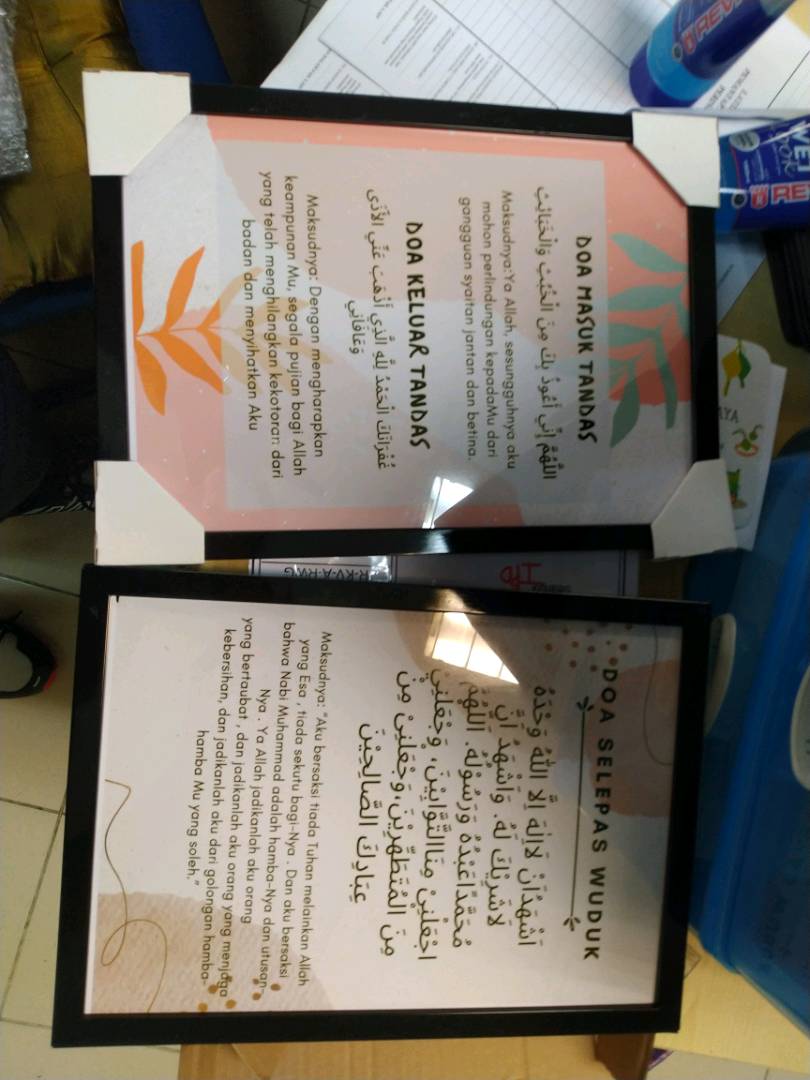 DOA MASUK TANDAS
اللَّهُمَّ إِنِّي أَعُوذُ بِكَ مِنَ الْخُبُثِ وَالْخَبَائِثِ
Maksudnya:Ya Allah, sesungguhnya aku
mohon perlindungan kepadaMu dari
gangguan syaitan jantan dan betina.
DOA KELUAR TANDAS
غُفْرَانَكَ الْحَمْدُ لِلَّهِ الَّذِي أَذْهَبَ عَنِّي الأَذَى
وَعَافَانِي
Maksudnya: Dengan mengharapkan
keampunan Mu, segala pujian bagi Allah
yang telah menghilangkan kekotoran dari
badan dan menyihatkan Aku
DOA SELEPAS WUDUK
اَشْهَدُاَنْ لَااِلٰهَ اِلَّا اللهُ وَحْدَهُ
لَاشَرِيْكَ لَهُ. وَاَشْهَدُ اَنَّ
مُحَمَّدًاعَبْدُهُ وَرَسُوْلُهُ. اَللّٰهُمَّ
اجْعَلْنِيْ مِنَاالتَّوَّابِيْنَ، وَجْعَلْنِيْ
مِنَ الْمُتَطَهِّرِيْنَ،وَجْعَلْنِيْ مِنْ
عِبَادِكَ الصَّالِحِيْنَ
Maksudnya: "Aku bersaksi tiada Tuhan melainkan Allah
yang Esa , tiada sekutu bagi-Nya . Dan aku bersaksi
bahwa Nabi Muhammad adalah hamba-Nya dan utusan-
Nya . Ya Allah jadikanlah aku orang
yang bertaubat , dan jadikanlah aku orang yang menjaga
kebersihan, dan jadikanlah aku dari golongan hamba-
hamba Mu yang soleh."